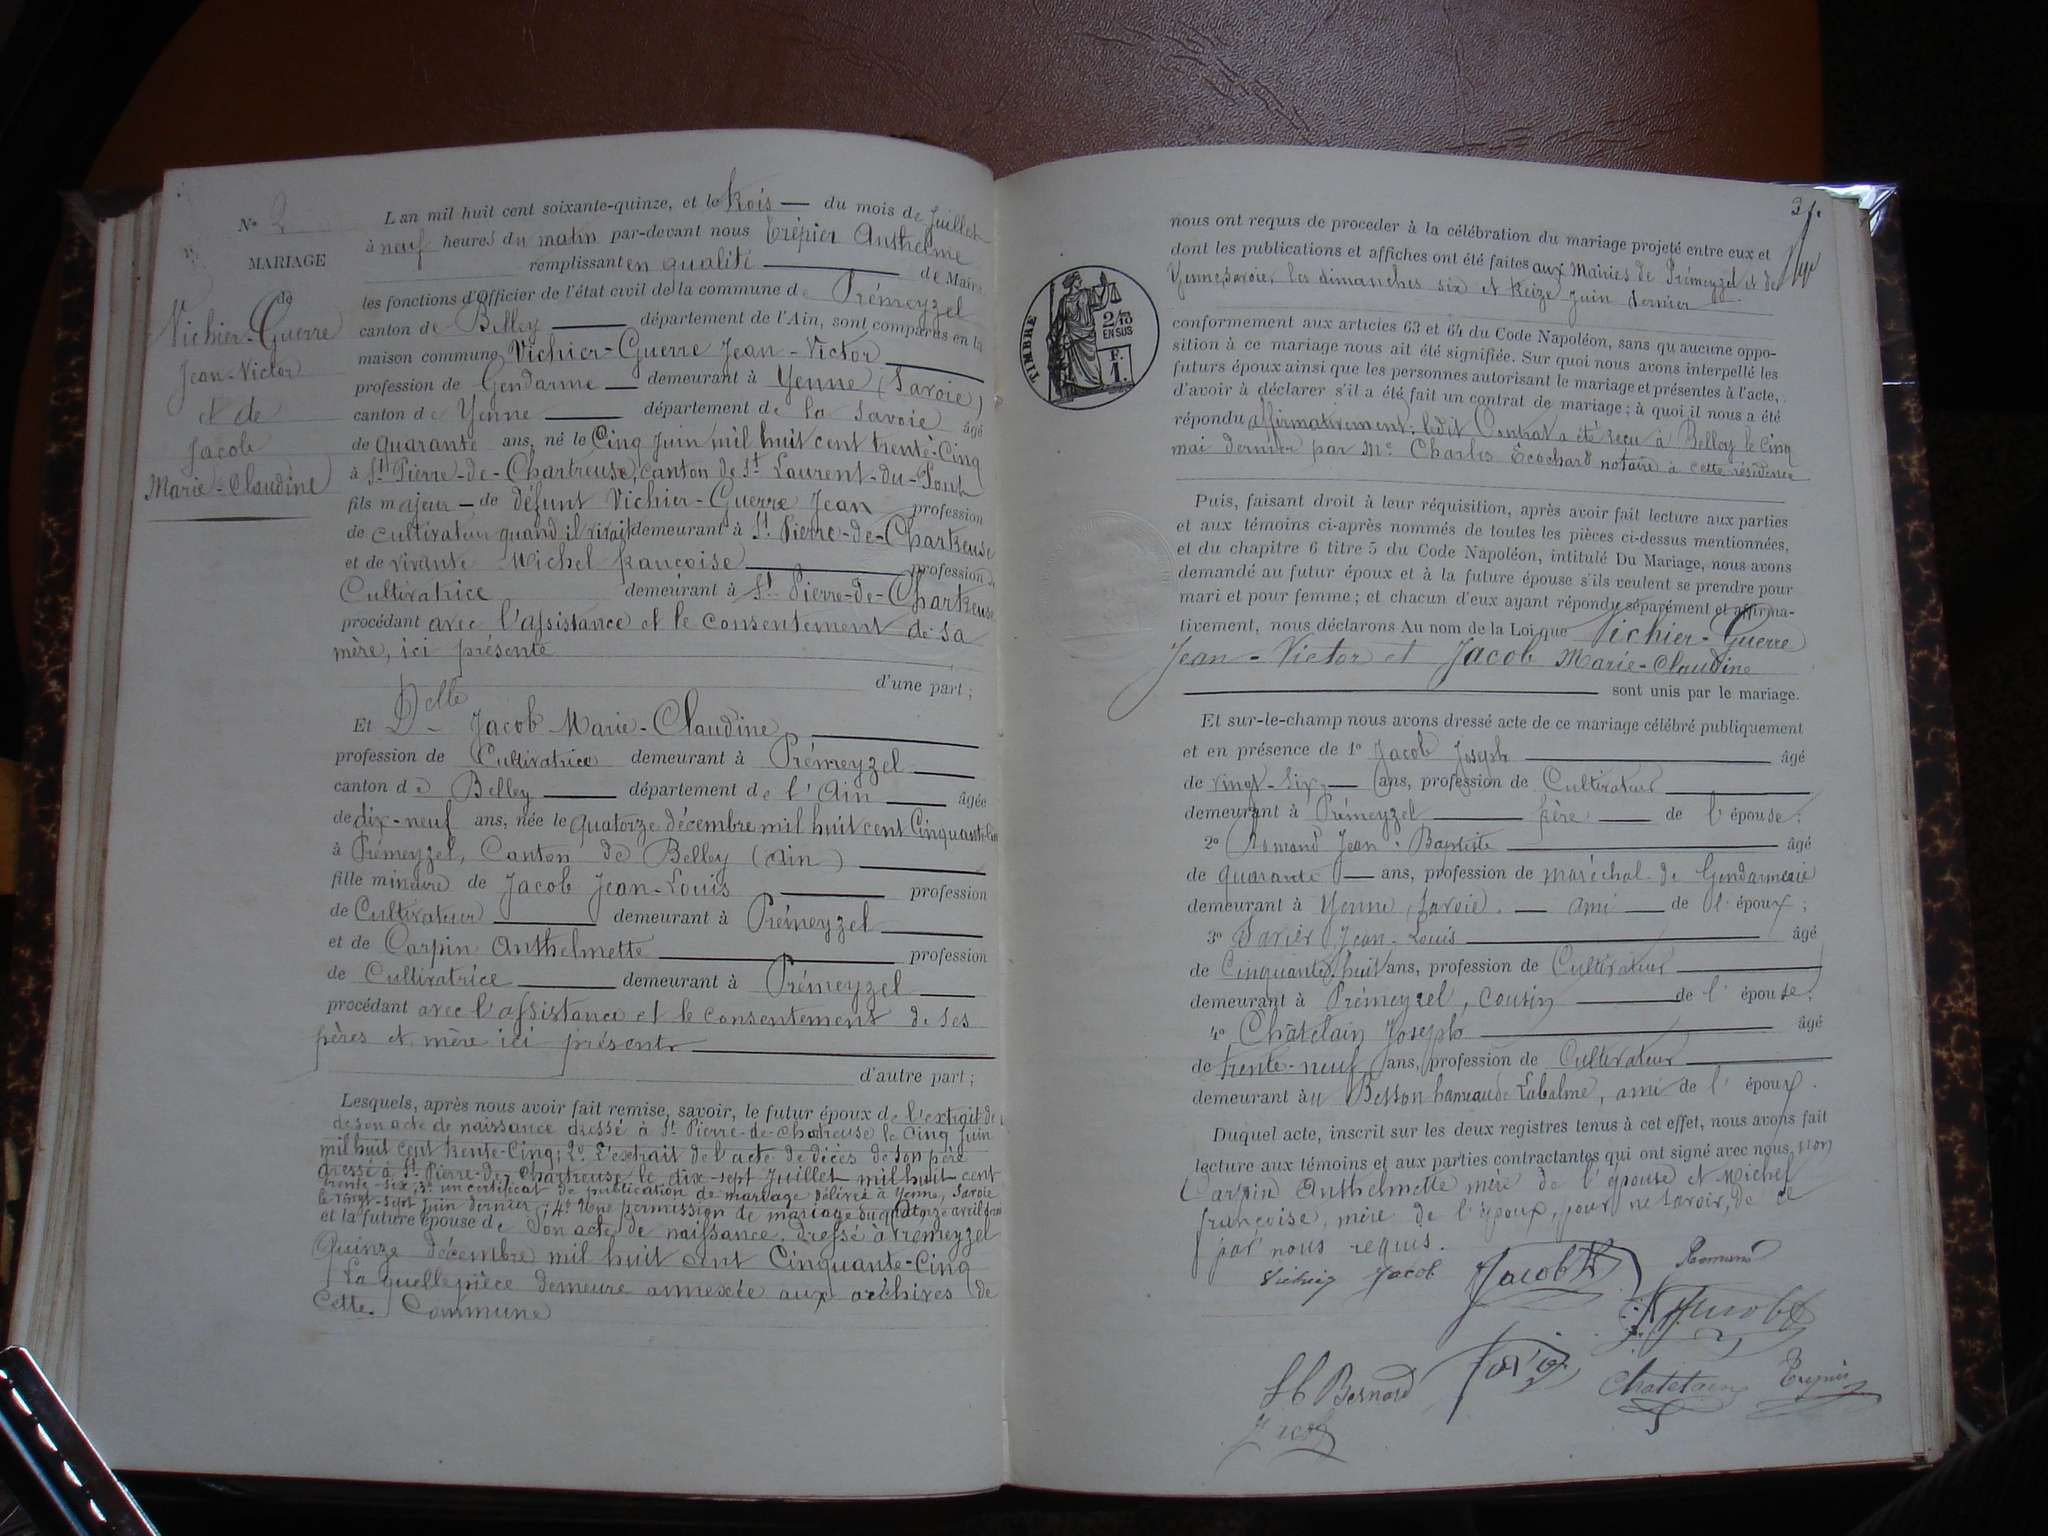 N° 2
MARIAGE
de
Vichier-Guerre
Jean-Victor
et de
Jacob
Marie-Claudine
L'an mil huit cent soixante-quinze, et le trois — du mois de Juillet
à neuf heures du matin par-devant nous Trépier Anthelme
remplissant en qualité de Maire
les fonctions d'Officier de l'état civil de la commune de Prémeyzel
canton de Belley département de l'Ain, sont comparus en la
maison commune Vichier-Guerre Jean-Victor
profession de Gendarme demeurant à Yenne (Savoie)
canton de Yenne département de la Savoie âgé
de quarante ans, né le Cinq Juin mil huit cent trente-Cinq
à St Pierre-de-Chartreuse, canton de St Laurent-du-Pont
fils majeur de défunt Vichier-Guerre Jean profession
de cultivateur quand il vivait demeurant à St Pierre-de-Chartreuse
et de vivante Michel françoise profession de
Cultivatrice demeurant à St Pierre-de-Chartreuse
procédant avec l'assistance et le consentement de sa
mère, ici présente
d'une part ;
Et Delle Jacob Marie-Claudine
profession de Cultivatrice demeurant à Prémeyzel
canton de Belley département de l'Ain âgée
de dix-neuf ans, née le quatorze décembre mil huit cent Cinquante-Cinq
à Prémeyzel, Canton de Belley (Ain)
fille mineure de Jacob Jean-Louis profession
de Cultivateur demeurant à Prémeyzel
et de Carpin Anthelmette profession
de Cultivatrice demeurant à Prémeyzel
procédant avec l'assistance et le consentement de ses
pères et mère ici présents
d'autre part ;
Lesquels, après nous avoir fait remise, savoir, le futur époux de l'extrait de
de son acte de naissance dressé à St Pierre-de-Chartreuse le Cinq Juin
mil huit cent trente-Cinq ; 2° L'extrait de l'acte de décès de son père
dressé à St Pierre-de-Chartreuse le dix-sept Juillet mil huit cent
trente-six ; 3° un certificat de publication de mariage délivré à Yenne, Savoie
le vingt-sept Juin dernier ; 4° Une permission de mariage du quatorze avril
et la future épouse de Son acte de naissance dressé à Prémeyzel
Quinze décembre mil huit cent Cinquante-Cinq
La quelle pièce demeure annexée aux archives de
cette Commune
31.
nous ont requis de procéder à la célébration du mariage projeté entre eux et
dont les publications et affiches ont été faites aux Mairies de Prémeyzel et de
Yenne, Savoie, les dimanches six et treize Juin dernier
TIMBRE
2/10
EN SUS
F.
1.
conformément aux articles 63 et 64 du Code Napoléon, sans qu'aucune oppo-
sition à ce mariage nous ait été signifiée. Sur quoi nous avons interpellé les
futurs époux ainsi que les personnes autorisant le mariage et présentes à l'acte,
d'avoir à déclarer s'il a été fait un contrat de mariage ; à quoi il nous a été
répondu affirmativement : ledit Contrat a été reçu à Belley le Cinq
mai dernier par Me Charles Ecochard notaire à cette résidence
Puis, faisant droit à leur réquisition, après avoir fait lecture aux parties
et aux témoins ci-après nommés de toutes les pièces ci-dessus mentionnées,
et du chapitre 6 titre 5 du Code Napoléon, intitulé Du Mariage, nous avons
demandé au futur époux et à la future épouse s'ils veulent se prendre pour
mari et pour femme ; et chacun d'eux ayant répondu séparément et affirma-
tivement, nous déclarons Au nom de la Loi que Vichier-Guerre
Jean-Victor et Jacob Marie-Claudine
sont unis par le mariage.
Et sur-le-champ nous avons dressé acte de ce mariage célébré publiquement
et en présence de 1° Jacob Joseph âgé
de vingt-six ans, profession de Cultivateur
demeurant à Prémeyzel frère de l'épouse ;
2° Romand Jean-Baptiste âgé
de quarante ans, profession de maréchal de Gendarmerie
demeurant à Yenne, Savoie. ami de l'époux ;
3° Savier Jean-Louis âgé
de Cinquante-huit ans, profession de Cultivateur
demeurant à Prémeyzel, cousin de l'épouse ;
4° Châtelain Joseph âgé
de trente-neuf ans, profession de Cultivateur
demeurant au Besson hameau de Labalme, ami de l'époux.
Duquel acte, inscrit sur les deux registres tenus à cet effet, nous avons fait
lecture aux témoins et aux parties contractantes qui ont signé avec nous, non
Carpin Anthelmette mère de l'épouse et Michel
françoise, mère de l'époux, pour ne savoir, de ce
par nous requis.
Vichier Jacob Jacob Romand
Jacob
Bernard Savier Chatelain Trepier
Jacob